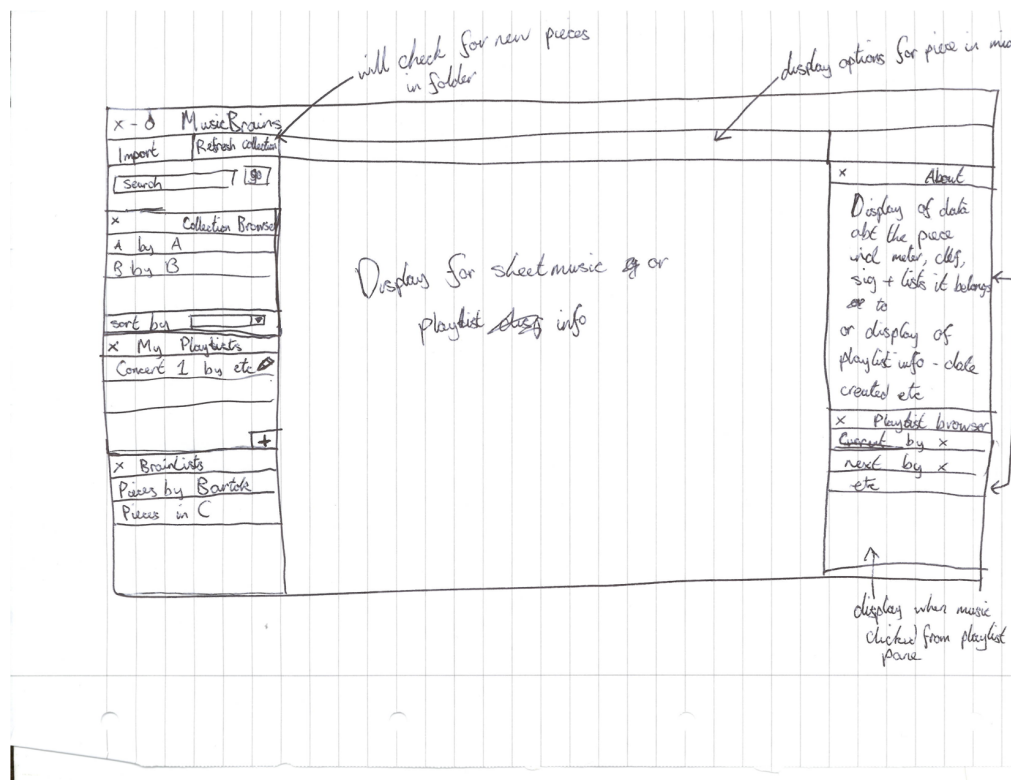 will check for new pieces
in folder
display options for piece in mid
x - MusicBrains
Import Refresh Collection
Search go
x Collection Browser
A by A
B by B
sort by
x My Playlists
Concert 1 by etc
+
x BrainLists
Pieces by Bartok
Pieces in C
Display for sheetmusic or
playlist info
x About
Display of data
abt the piece
incl meter, clef,
sig + lists it belongs
to
or display of
playlist info - date
created etc
x Playlist browser
Current by x
next by x
etc
display when music
clicked from playlist
pane